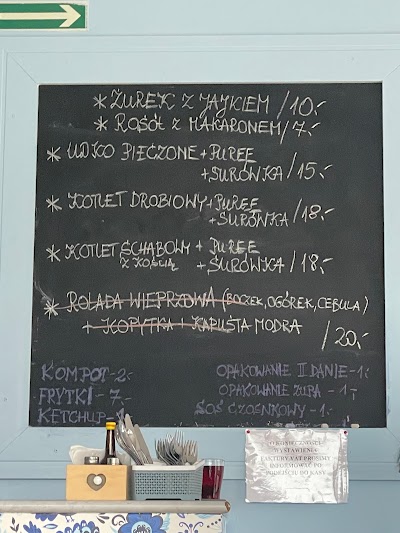 * ŻUREK Z JAJKIEM / 10,-
* ROSÓŁ Z MAKARONEM / 7,-
* UDKO PIECZONE + PUREE
+ SURÓWKA / 15,-
* KOTLET DROBIOWY + PUREE
+ SURÓWKA / 18,-
* KOTLET SCHABOWY + PUREE
Z KOŚCIĄ + SURÓWKA / 18,-
* ROLADA WIEPRZOWA (BOCZEK, OGÓREK, CEBULA)
+ KOPYTKA + KAPUSTA MODRA
/ 20,-
KOMPOT - 2,-
FRYTKI - 7,-
KETCHUP - 1
OPAKOWANIE II DANIE - 1,-
OPAKOWANIE ZUPA - 1,-
SOS CZOSNKOWY - 1,-
O KONIECZNOŚCI
WYSTAWIENIA
FAKTURY VAT PROSIMY
INFORMOWAĆ PO
PODEJŚCIU DO KASY